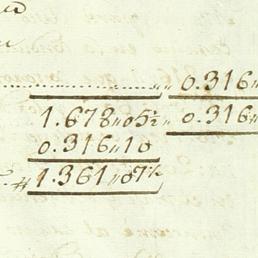 0.316〃
1.678〃05½〃 0.316〃
0.316〃10
1.361〃07½